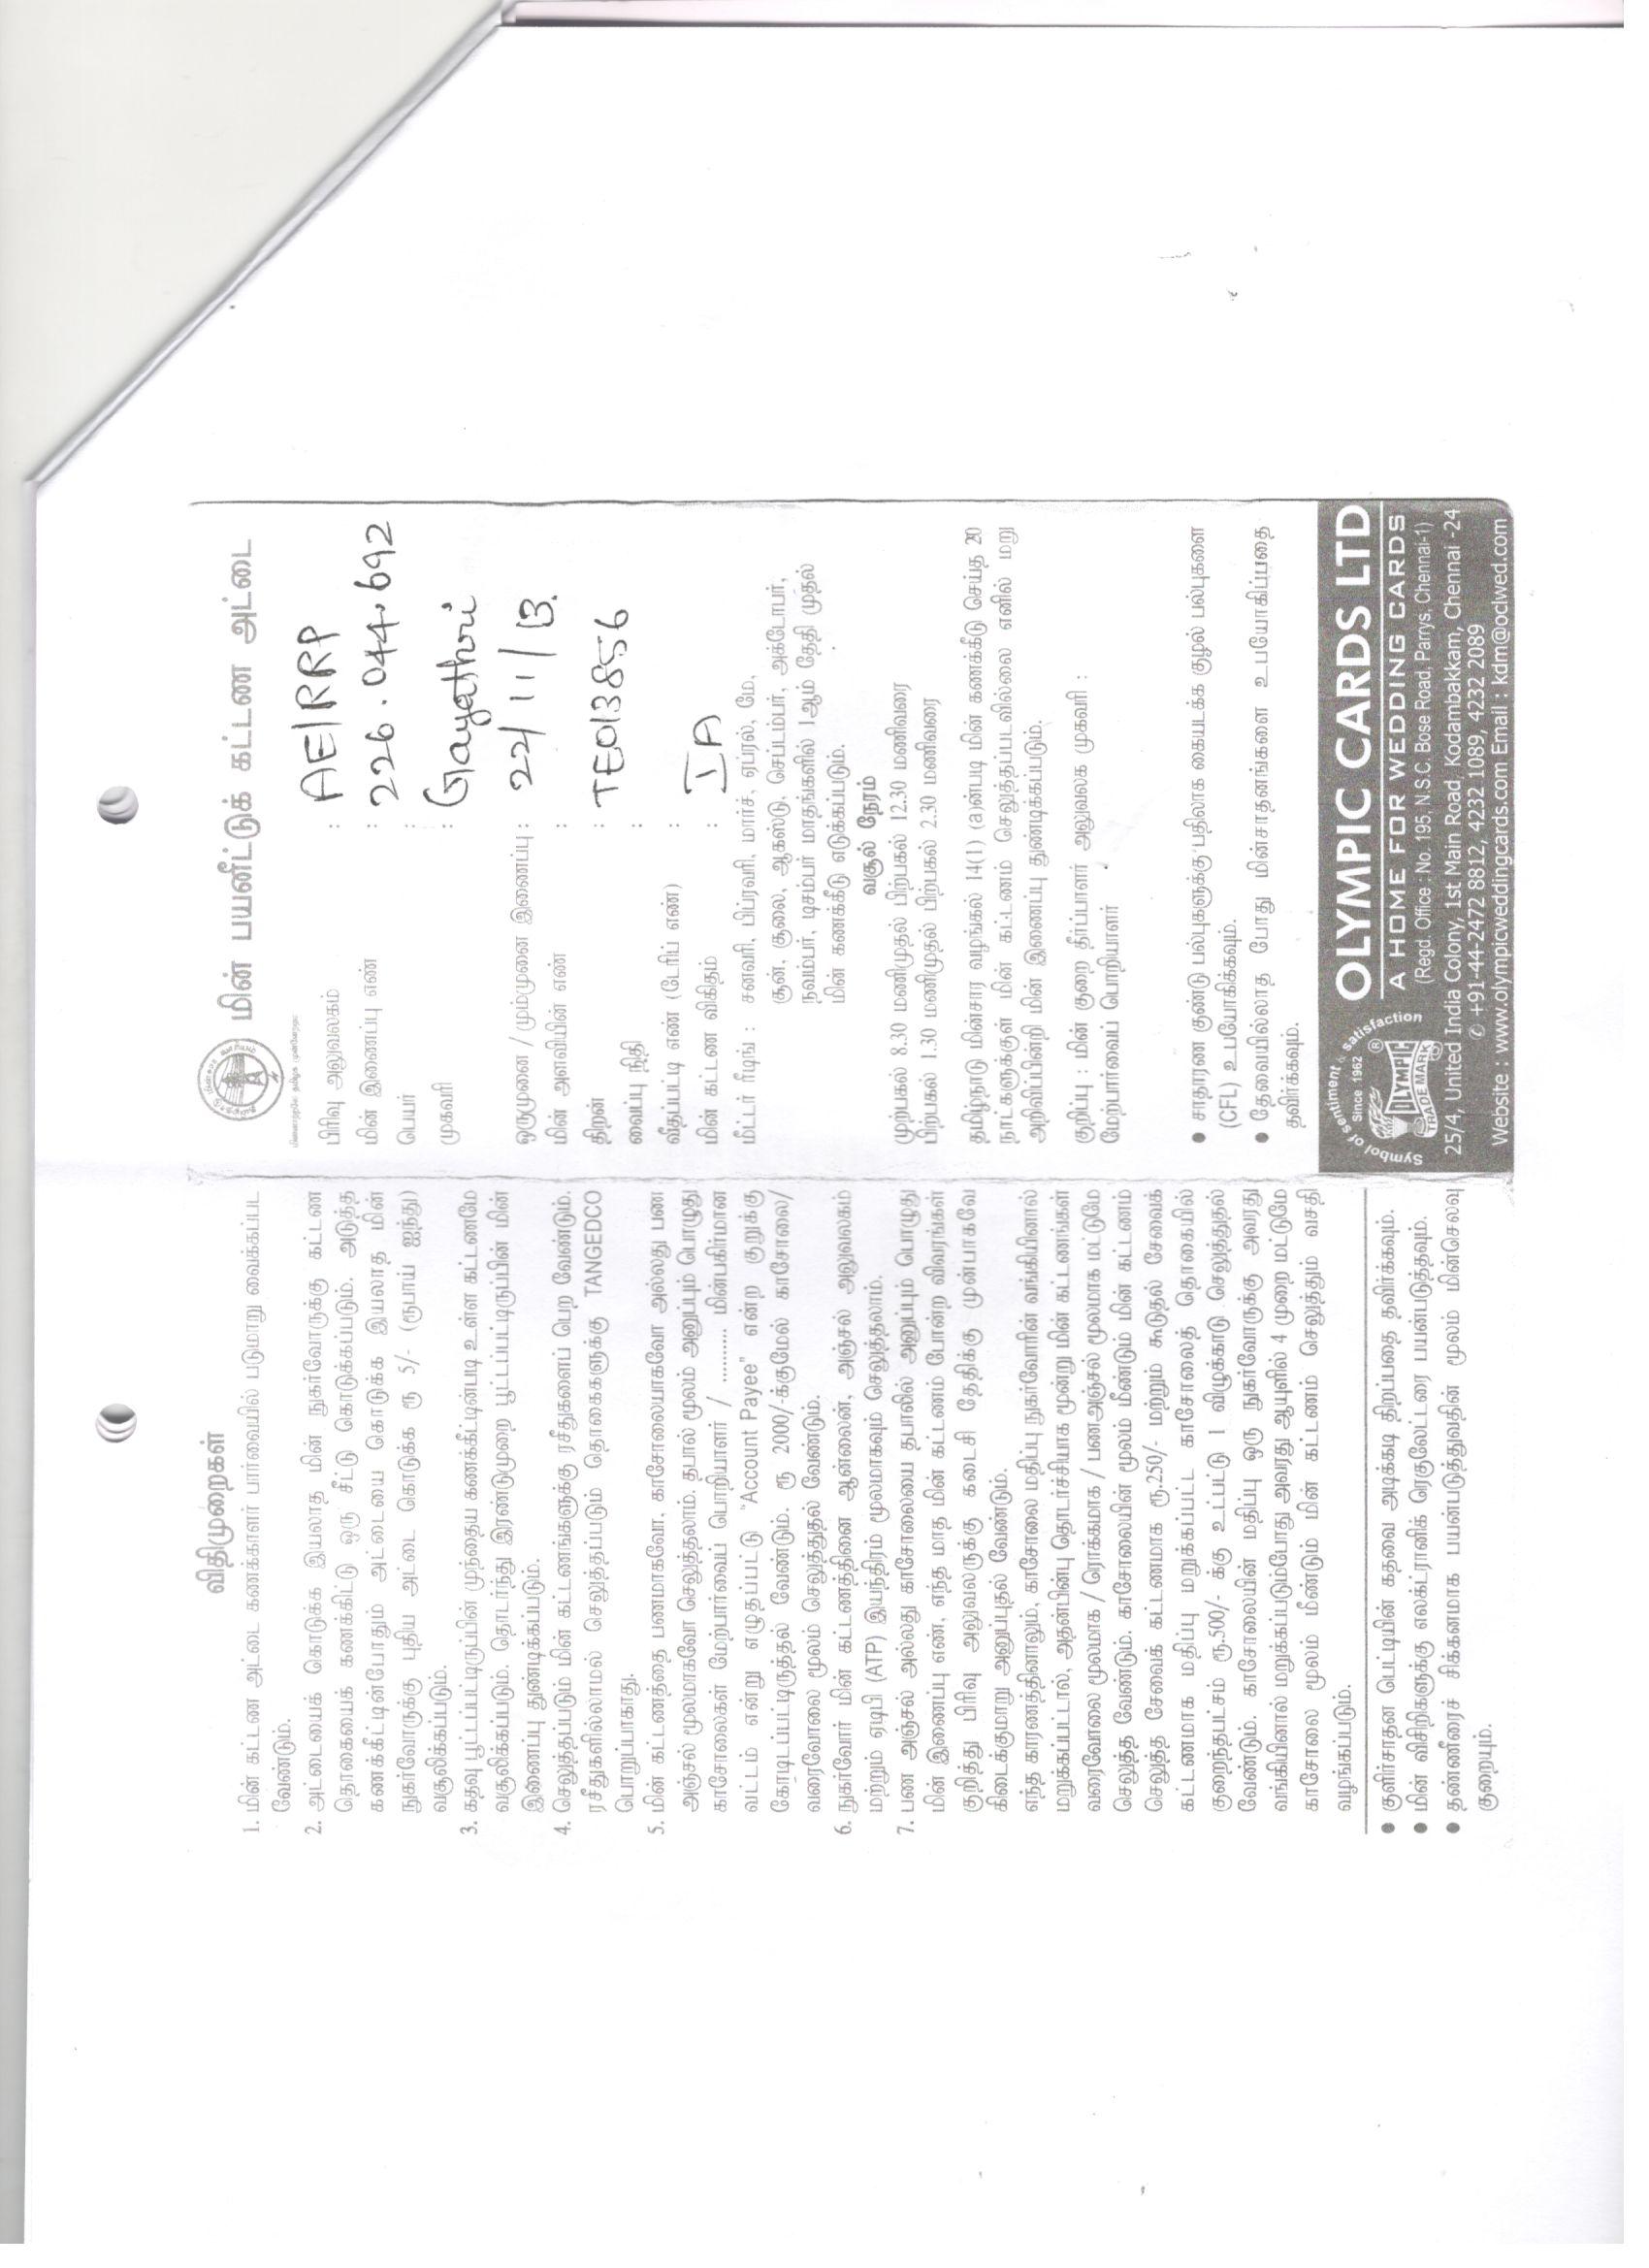 விதிமுறைகள்
1. மின் கட்டண அட்டை கணக்காளர் பார்வையில் படுமாறு வைக்கப்பட
வேண்டும்.
2. அட்டையைக் கொடுக்க இயலாத மின் நுகர்வோருக்கு கட்டண
தொகையைக் கணக்கிட்டு ஒரு சீட்டு கொடுக்கப்படும். அடுத்த
கணக்கீட்டின்போதும் அட்டையை கொடுக்க இயலாத மின்
நுகர்வோருக்கு புதிய அட்டை கொடுக்க ரூ 5/- (ரூபாய் ஐந்து)
வசூலிக்கப்படும்.
3. கதவு பூட்டப்பட்டிருப்பின் முந்தைய கணக்கீட்டின்படி உள்ள கட்டணமே
வசூலிக்கப்படும். தொடர்ந்து இரண்டுமுறை பூட்டப்பட்டிருப்பின் மின்
இணைப்பு துண்டிக்கப்படும்.
4. செலுத்தப்படும் மின் கட்டணங்களுக்கு ரசீதுகளைப் பெற வேண்டும்.
ரசீதுகளில்லாமல் செலுத்தப்படும் தொகைகளுக்கு TANGEDCO
பொறுப்பாகாது.
5. மின் கட்டணத்தை பணமாகவோ, காசோலையாகவோ அல்லது பண
அஞ்சல் மூலமாகவோ செலுத்தலாம். தபால் மூலம் அனுப்பும் பொழுது
காசோலைகள் மேற்பார்வைப் பொறியாளர் / .......... மின்பகிர்மான
வட்டம் என்று எழுதப்பட்டு "Account Payee" என்ற குறுக்கு
கோடிடப்பட்டிருத்தல் வேண்டும். ரூ 2000/-க்குமேல் காசோலை/
வரைவோலை மூலம் செலுத்துதல் வேண்டும்.
6. நுகர்வோர் மின் கட்டணத்தினை ஆன்லைன், அஞ்சல் அலுவலகம்
மற்றும் ஏடிபி (ATP) இயந்திரம் மூலமாகவும் செலுத்தலாம்.
7. பண அஞ்சல் அல்லது காசோலையை தபாலில் அனுப்பும் பொழுது
மின் இணைப்பு எண், எந்த மாத மின் கட்டணம் போன்ற விவரங்கள்
குறித்து பிரிவு அலுவலருக்கு கடைசி தேதிக்கு முன்பாகவே
கிடைக்குமாறு அனுப்புதல் வேண்டும்.
எந்த காரணத்தினாலும், காசோலை மதிப்பு நுகர்வோரின் வங்கியினால்
மறுக்கப்பட்டால், அதன்பின்பு தொடர்ச்சியாக மூன்று மின் கட்டணங்கள்
வரைவோலை மூலமாக / ரொக்கமாக / பணஅஞ்சல் மூலமாக மட்டுமே
செலுத்த வேண்டும். காசோலையின் மூலம் மீண்டும் மின் கட்டணம்
செலுத்த சேவைக் கட்டணமாக ரூ.250/- மற்றும் கூடுதல் சேவைக்
கட்டணமாக மதிப்பு மறுக்கப்பட்ட காசோலைத் தொகையில்
குறைந்தபட்சம் ரூ.500/- க்கு உட்பட்டு 1 விழுக்காடு செலுத்துதல்
வேண்டும். காசோலையின் மதிப்பு ஒரு நுகர்வோருக்கு அவரது
வங்கியினால் மறுக்கப்படும்போது அவரது ஆயுளில் 4 முறை மட்டுமே
காசோலை மூலம் மீண்டும் மின் கட்டணம் செலுத்தும் வசதி
வழங்கப்படும்.
● குளிர்சாதன பெட்டியின் கதவை அடிக்கடி திறப்பதை தவிர்க்கவும்.
● மின் விசிறிகளுக்கு எலக்ட்ரானிக் ரெகுலேட்டரை பயன்படுத்தவும்.
● தண்ணீரைச் சிக்கனமாக பயன்படுத்துவதின் மூலம் மின்செலவு
குறையும்.
மின் பயனீட்டுக் கட்டண அட்டை
பிரிவு அலுவலகம் : AE/RRP
மின் இணைப்பு எண் : 226.044.692
பெயர் : Gayathri
முகவரி :
ஒருமுனை / மும்முனை இணைப்பு : 22/11/13.
மின் அளவியின் எண் :
திறன் : TE013856
வைப்பு நிதி :
வீதப்பட்டி எண் (டேரிப் எண்) :
மின் கட்டண விகிதம் : IA
மீட்டர் ரீடிங் : சனவரி, பிப்ரவரி, மார்ச், ஏப்ரல், மே,
சூன், சூலை, ஆகஸ்டு, செப்டம்பர், அக்டோபர்,
நவம்பர், டிசம்பர் மாதங்களில் 1ஆம் தேதி முதல்
மின் கணக்கீடு எடுக்கப்படும்.
வசூல் நேரம்
முற்பகல் 8.30 மணிமுதல் பிற்பகல் 12.30 மணிவரை
பிற்பகல் 1.30 மணிமுதல் பிற்பகல் 2.30 மணிவரை
தமிழ்நாடு மின்சார வழங்கல் 14(1) (a)ன்படி மின் கணக்கீடு செய்த 20
நாட்களுக்குள் மின் கட்டணம் செலுத்தப்படவில்லை எனில் மறு
அறிவிப்பின்றி மின் இணைப்பு துண்டிக்கப்படும்.
குறிப்பு : மின் குறை தீர்ப்பாளர் அலுவலக முகவரி :
மேற்பார்வைப் பொறியாளர்
● சாதாரண குண்டு பல்புகளுக்கு பதிலாக கையடக்க குழல் பல்புகளை
(CFL) உபயோகிக்கவும்.
● தேவையில்லாத போது மின்சாதனங்களை உபயோகிப்பதை
தவிர்க்கவும்.
Symbol of sentiment & satisfaction
Since 1962
OLYMPIC ®
TRADE MARK
OLYMPIC CARDS LTD
A HOME FOR WEDDING CARDS
(Regd. Office : No. 195, N.S.C. Bose Road, Parrys, Chennai-1)
25/4, United India Colony, 1st Main Road, Kodambakkam, Chennai -24
✆ +91-44-2472 8812, 4232 1089, 4232 2089
Website : www.olympicweddingcards.com Email : kdm@oclwed.com